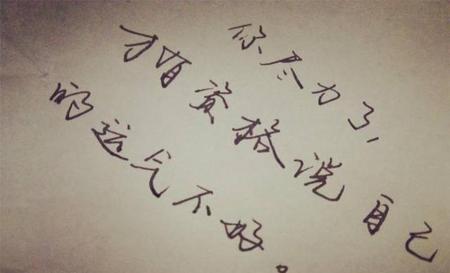 你尽力了,
才有资格说自己
的运气不好。